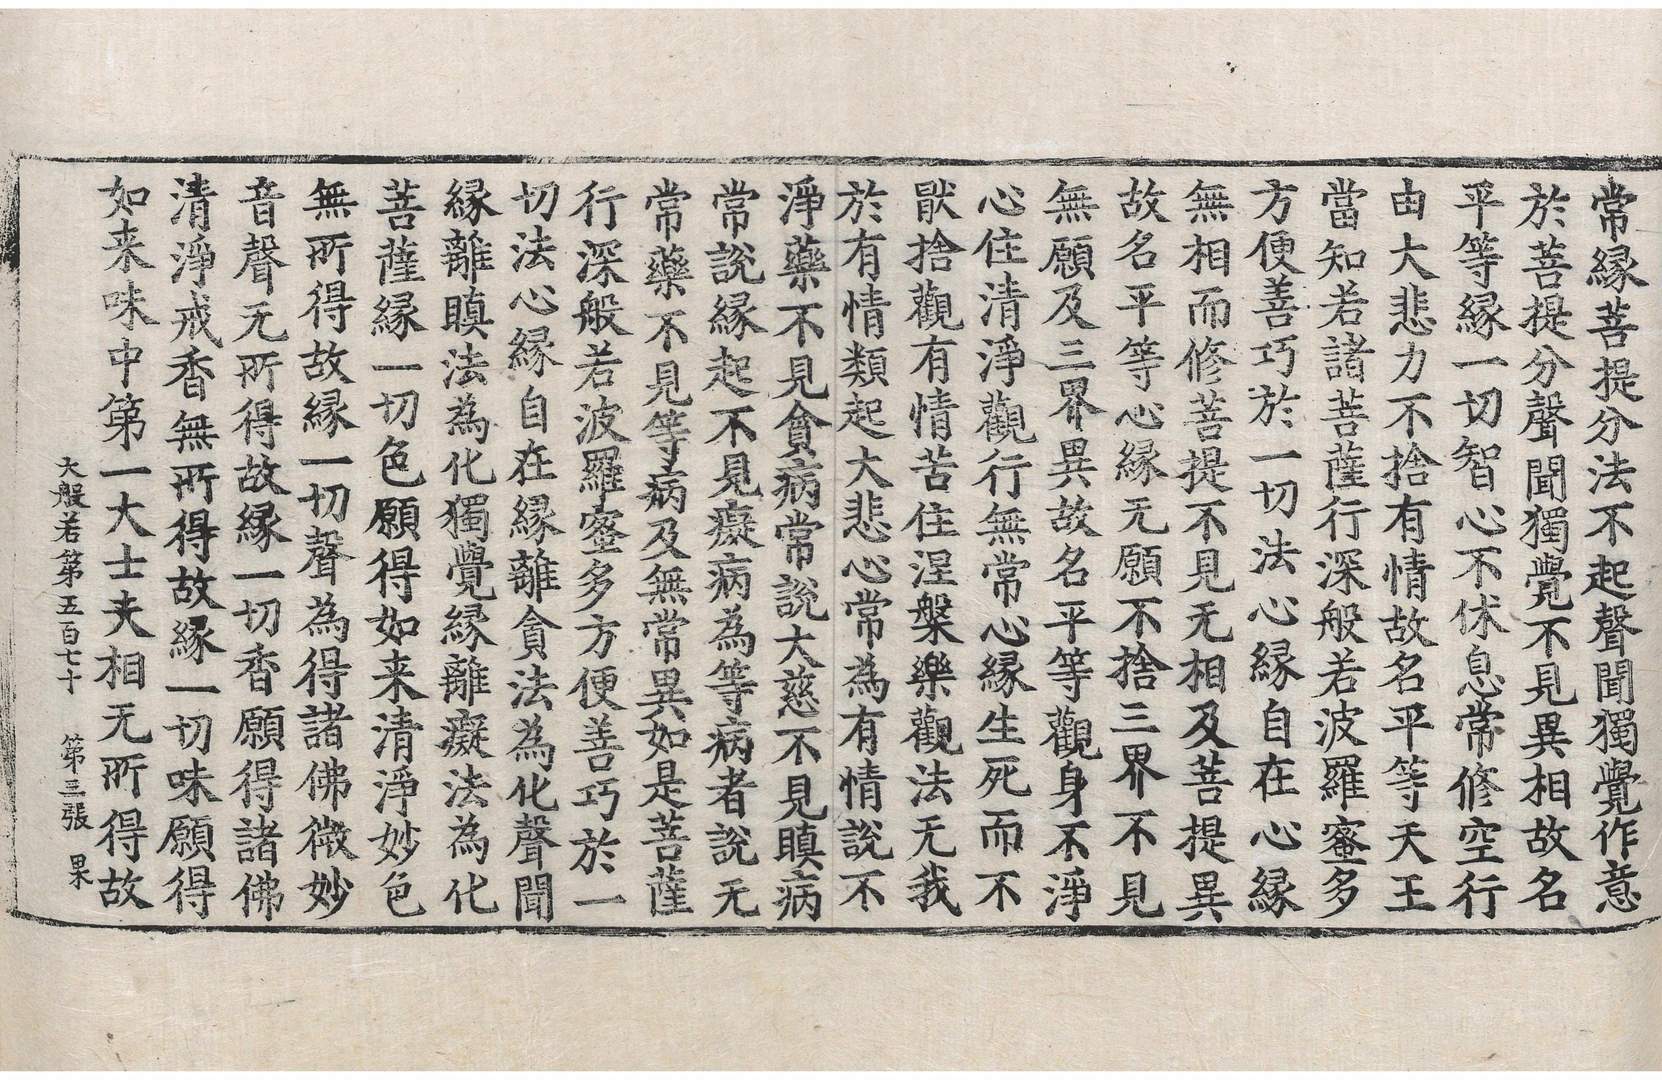 常緣菩提分法不起聲聞獨覺作意
於菩提分聲聞獨覺不見異相故名
平等緣一切智心不休息常修空行
由大悲力不捨有情故名平等天王
當知若諸菩薩行深般若波羅蜜多
方便善巧於一切法心緣自在心緣
無相而修菩提不見无相及菩提異
故名平等心緣无願不捨三界不見
無願及三界異故名平等觀身不淨
心住清淨觀行無常心緣生死而不
猒捨觀有情苦住涅槃樂觀法无我
於有情類起大悲心常為有情說不
淨藥不見貪病常說大慈不見瞋病
常說緣起不見癡病為等病者說无
常藥不見等病及無常異如是菩薩
行深般若波羅蜜多方便善巧於一
切法心緣自在緣離貪法為化聲聞
緣離瞋法為化獨覺緣離癡法為化
菩薩緣一切色願得如来清淨妙色
無所得故緣一切聲為得諸佛微妙
音聲无所得故緣一切香願得諸佛
清淨戒香無所得故緣一切味願得
如来味中第一大士夫相无所得故
大般若第五百七十　第三張　果